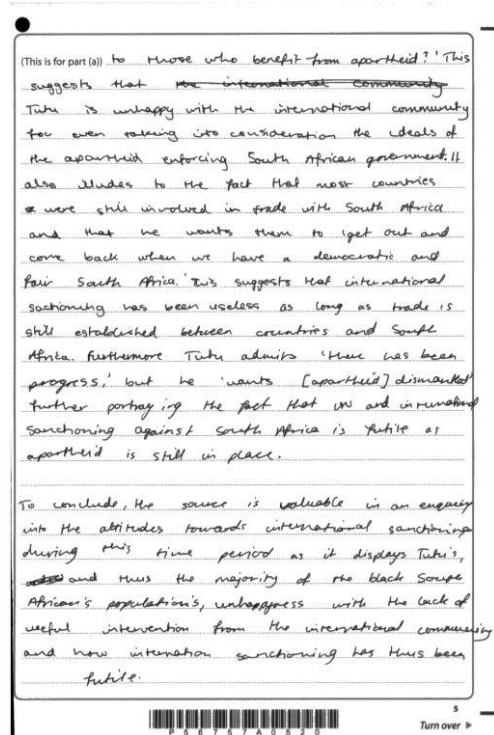 (This is for part (a)) to those who benefit from apartheid?' This
suggests that the international community
Tutu is unhappy with the international community
for even taking into consideration the ideals of
the apartheid enforcing South African government. It
also alludes to the fact that most countries
were still involved in trade with South Africa
and that he wants them to 'get out and
come back when we have a democratic and
fair South Africa.' This suggests that international
sactioning has been useless as long as trade is
still established between countries and South
Africa. Furthermore Tutu admits 'there has been
progress,' but he 'wants [apartheid] dismantled'
further portraying the fact that UN and international
sanctioning against South Africa is futile as
apartheid is still in place.
To conclude, the source is valuable in an enquiry
into the attitudes towards international sanctioning
during this time period as it displays Tutu's,
and thus the majority of the black South
African's population's, unhappyness with the lack of
useful intervention from the international community
and how internation sanctioning has thus been
futile.
5
Turn over
P56757A0520